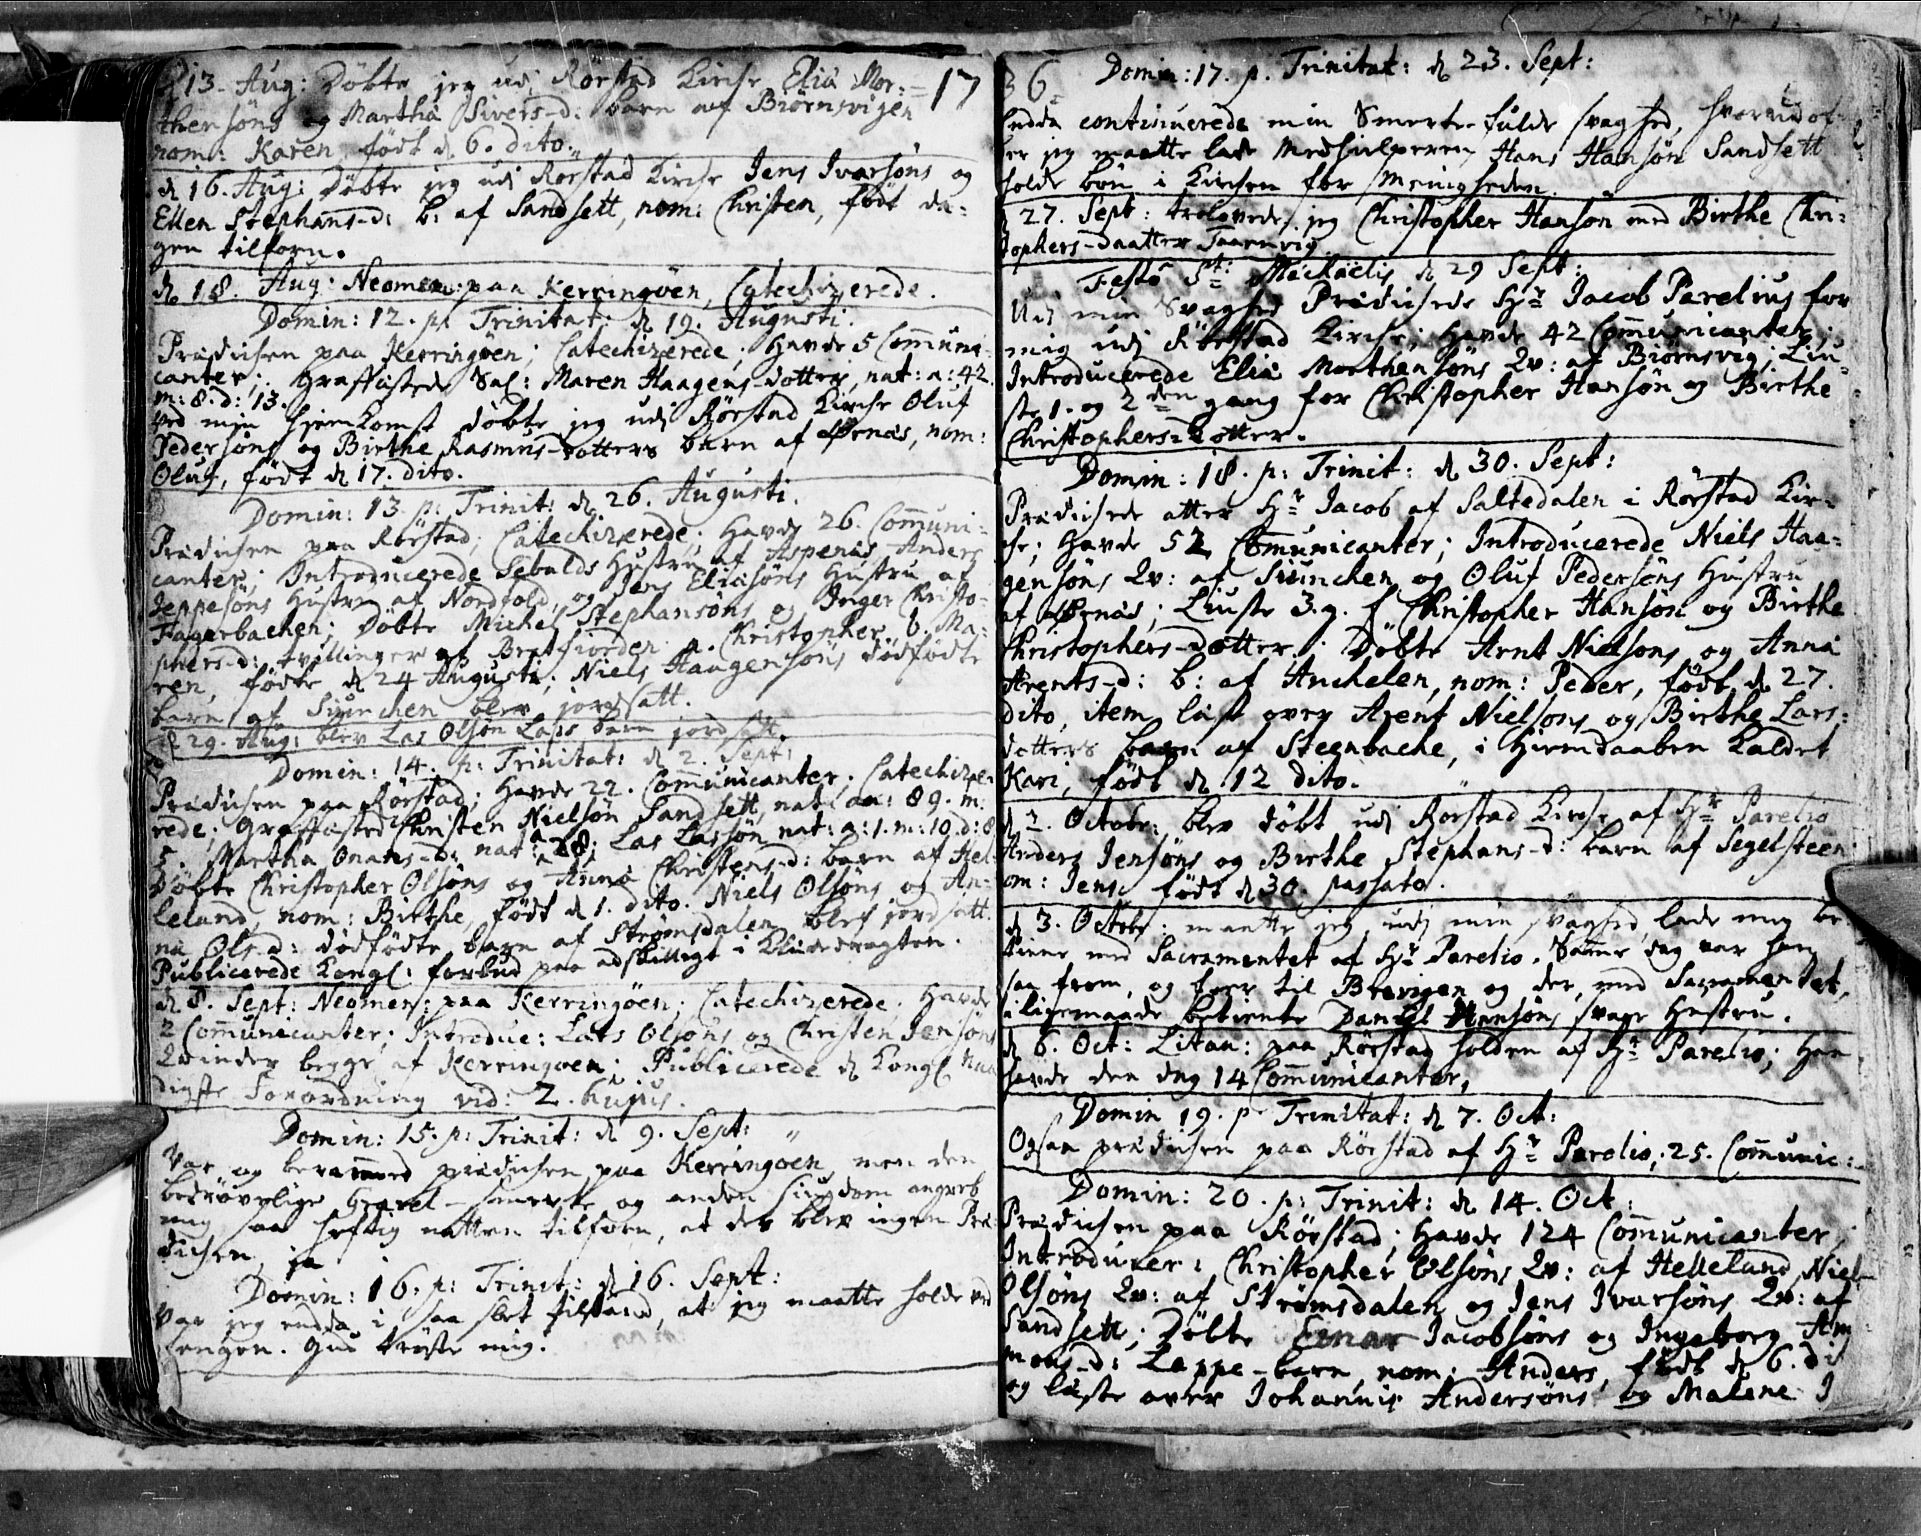 d 13. Aug: Döbte jeg udj Rörstad Kirche Eliæ Mor: = 17
thensöns og Martha Sivers-d: barn af Biörnsvigen
nom: Karen, födt d 6. dito.
d 16. Aug: Döbte jeg udj Rörstad Kirche Jens Ivarsöns og
Ellen Stephans-d: b: af Sandsett, nom: Christen, födt da-
gen tilforn.
d 18. Aug: Neomen: paa Kerringöen, Catechizerede.
Domin: 12. p: Trinitat: d 19. Augusti.
Prædichen paa Kerringöen; Catechizerede; Havde 5 Communi-
canter; Graffæstede Sal: Maren Haagens-dotter, nat: a: 42.
m: 8. d: 13.
Ved min hiemkomst döbte jeg udj Rörstad Kirche Oluf
Pedersöns og Birthe Rasmus-dotters barn af Ørnæs, nom:
Oluf, födt d 17. dito.
Domin: 13. p: Trinit: d 26. Augusti.
Prædichen paa Rörstad; Catechizerede; Havde 26. Communi-
canter; Introducerede Sebalds Hustru af Aspenæs, Anders
Jeppesöns Hustru af Nordfold, og Jens Eliæsöns Hustru af
Fagerbachen; Döbte Michel Stephansöns og Inger Christo-
phers-d: tvillinger af Bratfiorden a. Christopher, b. Ma-
ren, födte d 24 Augusti; Niels Haagensöns dödfödte
barn af Suinchen blev jordsatt.
d 29. Aug: blev Las Olsön Laps barn jordsatt.
Domin: 14. p: Trinitat: d 2. Sept:
Prædichen paa Rörstad; Havde 22. Communicanter. Catechize-
rede; Graffæsted Christen Nielsön Sandsett, nat: an: 89. m:
5. Martha Onans-d: nat: a 28; Las Lassön nat: a: 1. m: 10. d: 8
Döbte Christopher Olsöns og Anna Christens-d: barn af Hel-
leland, nom: Birthe, födt d 1. dito. Niels Olsöns og An-
na Ols-d: dödfödte barn af Strömsdalen blef jordsatt.
Publicerede Kongl: forbud paa adskilligt i Klædedragten.
d 8. Sept: Neomen: paa Kerringöen; Catechizerede; Havde
2 Communicanter; Introduc: Lars Olsöns og Christen Jensöns
Qvinder begge af Kerringoen; Publicerede d Kongl Naa
digste Forordning vid: 2. hujus.
Domin: 15. p: Trinit: d 9. Sept:
Var og berammed prædichen paa Kerringöen, men den
bedrøvelige Gravel-smerte og anden siugdom angreb
mig saa heftig natten tilforn, at der blev ingen Præ-
dichen, ja
Domin: 16. p: Trinit: d 16. Sept:
Var jeg endda i saa slet tilstand, at jeg maatte holde ved
sengen. Gud tröste mig.
36 Domin: 17. p. Trinitat: d 23. Sept:
Endda continuerede min Smerte-fulde svaghed, hvorudof-
ver jeg maatte lade Medhielperen Hans Hansön Sandsett
holde bön i Kirchen for Menigheden.
d 27. Sept: trolovede jeg Christopher Hansön med Birthe Chri-
stophers-daatter Taarnvig
Festo St: Michaëlis d 29 Sept:
Udj min Svaghed Prædichede Hr Jacob Parelius for
mig udj Rörstad Kirche; Havde 42 Communicanter;
Introducerede Eliæ Morthensöns Qv: af Biörnsvig; Liu-
ste 1. og 2den gang for Christopher Hansön og Birthe
Christophers-Dotter.
Domin: 18. p: Trinit: d 30. Sept:
Prædichede atter Hr Jacob af Saltedalen i Rörstad Kir-
che; Havde 52 Comunicanter; Introducerede Niels Haa-
gensöns Qv: af Suinchen og Oluf Pedersöns Hustru
af Ørnæs; Liuste 3. g. f Christopher Hansön og Birthe
Christophers-Dotter; Döbte Arnt Nielsöns og Anna
Arents-d: b: af Anchelen, nom: Peder, födt d 27.
dito, item læst over Arent Nielsöns og Birthe Lars-
dotters barn af Steenbache, i Hiemdaaben kaldet
Kari, födt d 12 dito.
d 2. Octobr: blev döbt udj Rörstad Kirche af Hr Parelio
Anders Jensöns og Birthe Stephans-d: barn af Segelsteen
nom: Jens, födt d 30. passato.
d 3. Octobr: maatte jeg udj min svaghed lade mig be-
tiene med Sacramentet af Hr Parelio. Samme dag var han
saa from, og foer til Brevigen og der, med Sacramentet,
iligemaade betiente Daniel Hansöns svage Hustru.
d 6. Oct: Litan: paa Rörstad holden af Hr Parelio; Han
havde den dag 14 Communicanter,
Domin 19. p Trinitat: d 7. Oct:
Ogsaa prædichen paa Rörstad af Hr Parelio; 25. Communic:
Domin: 20. p: Trinit: d 14. Oct:
Prædichen paa Rörstad; Havde 124 Communicanter;
Introducer: Christopher Olsöns Qv: af Helleland, Niels
Olsöns Qv: af Strömsdalen og Jens Ivarsöns Qv: af
Sandsett; Döbte Einar Jacobsöns og Ingeborg Am
mons-d: Lappe-barn, nom: Anders, födt d 6. di
og læste over Johannis Andersöns og Malene J